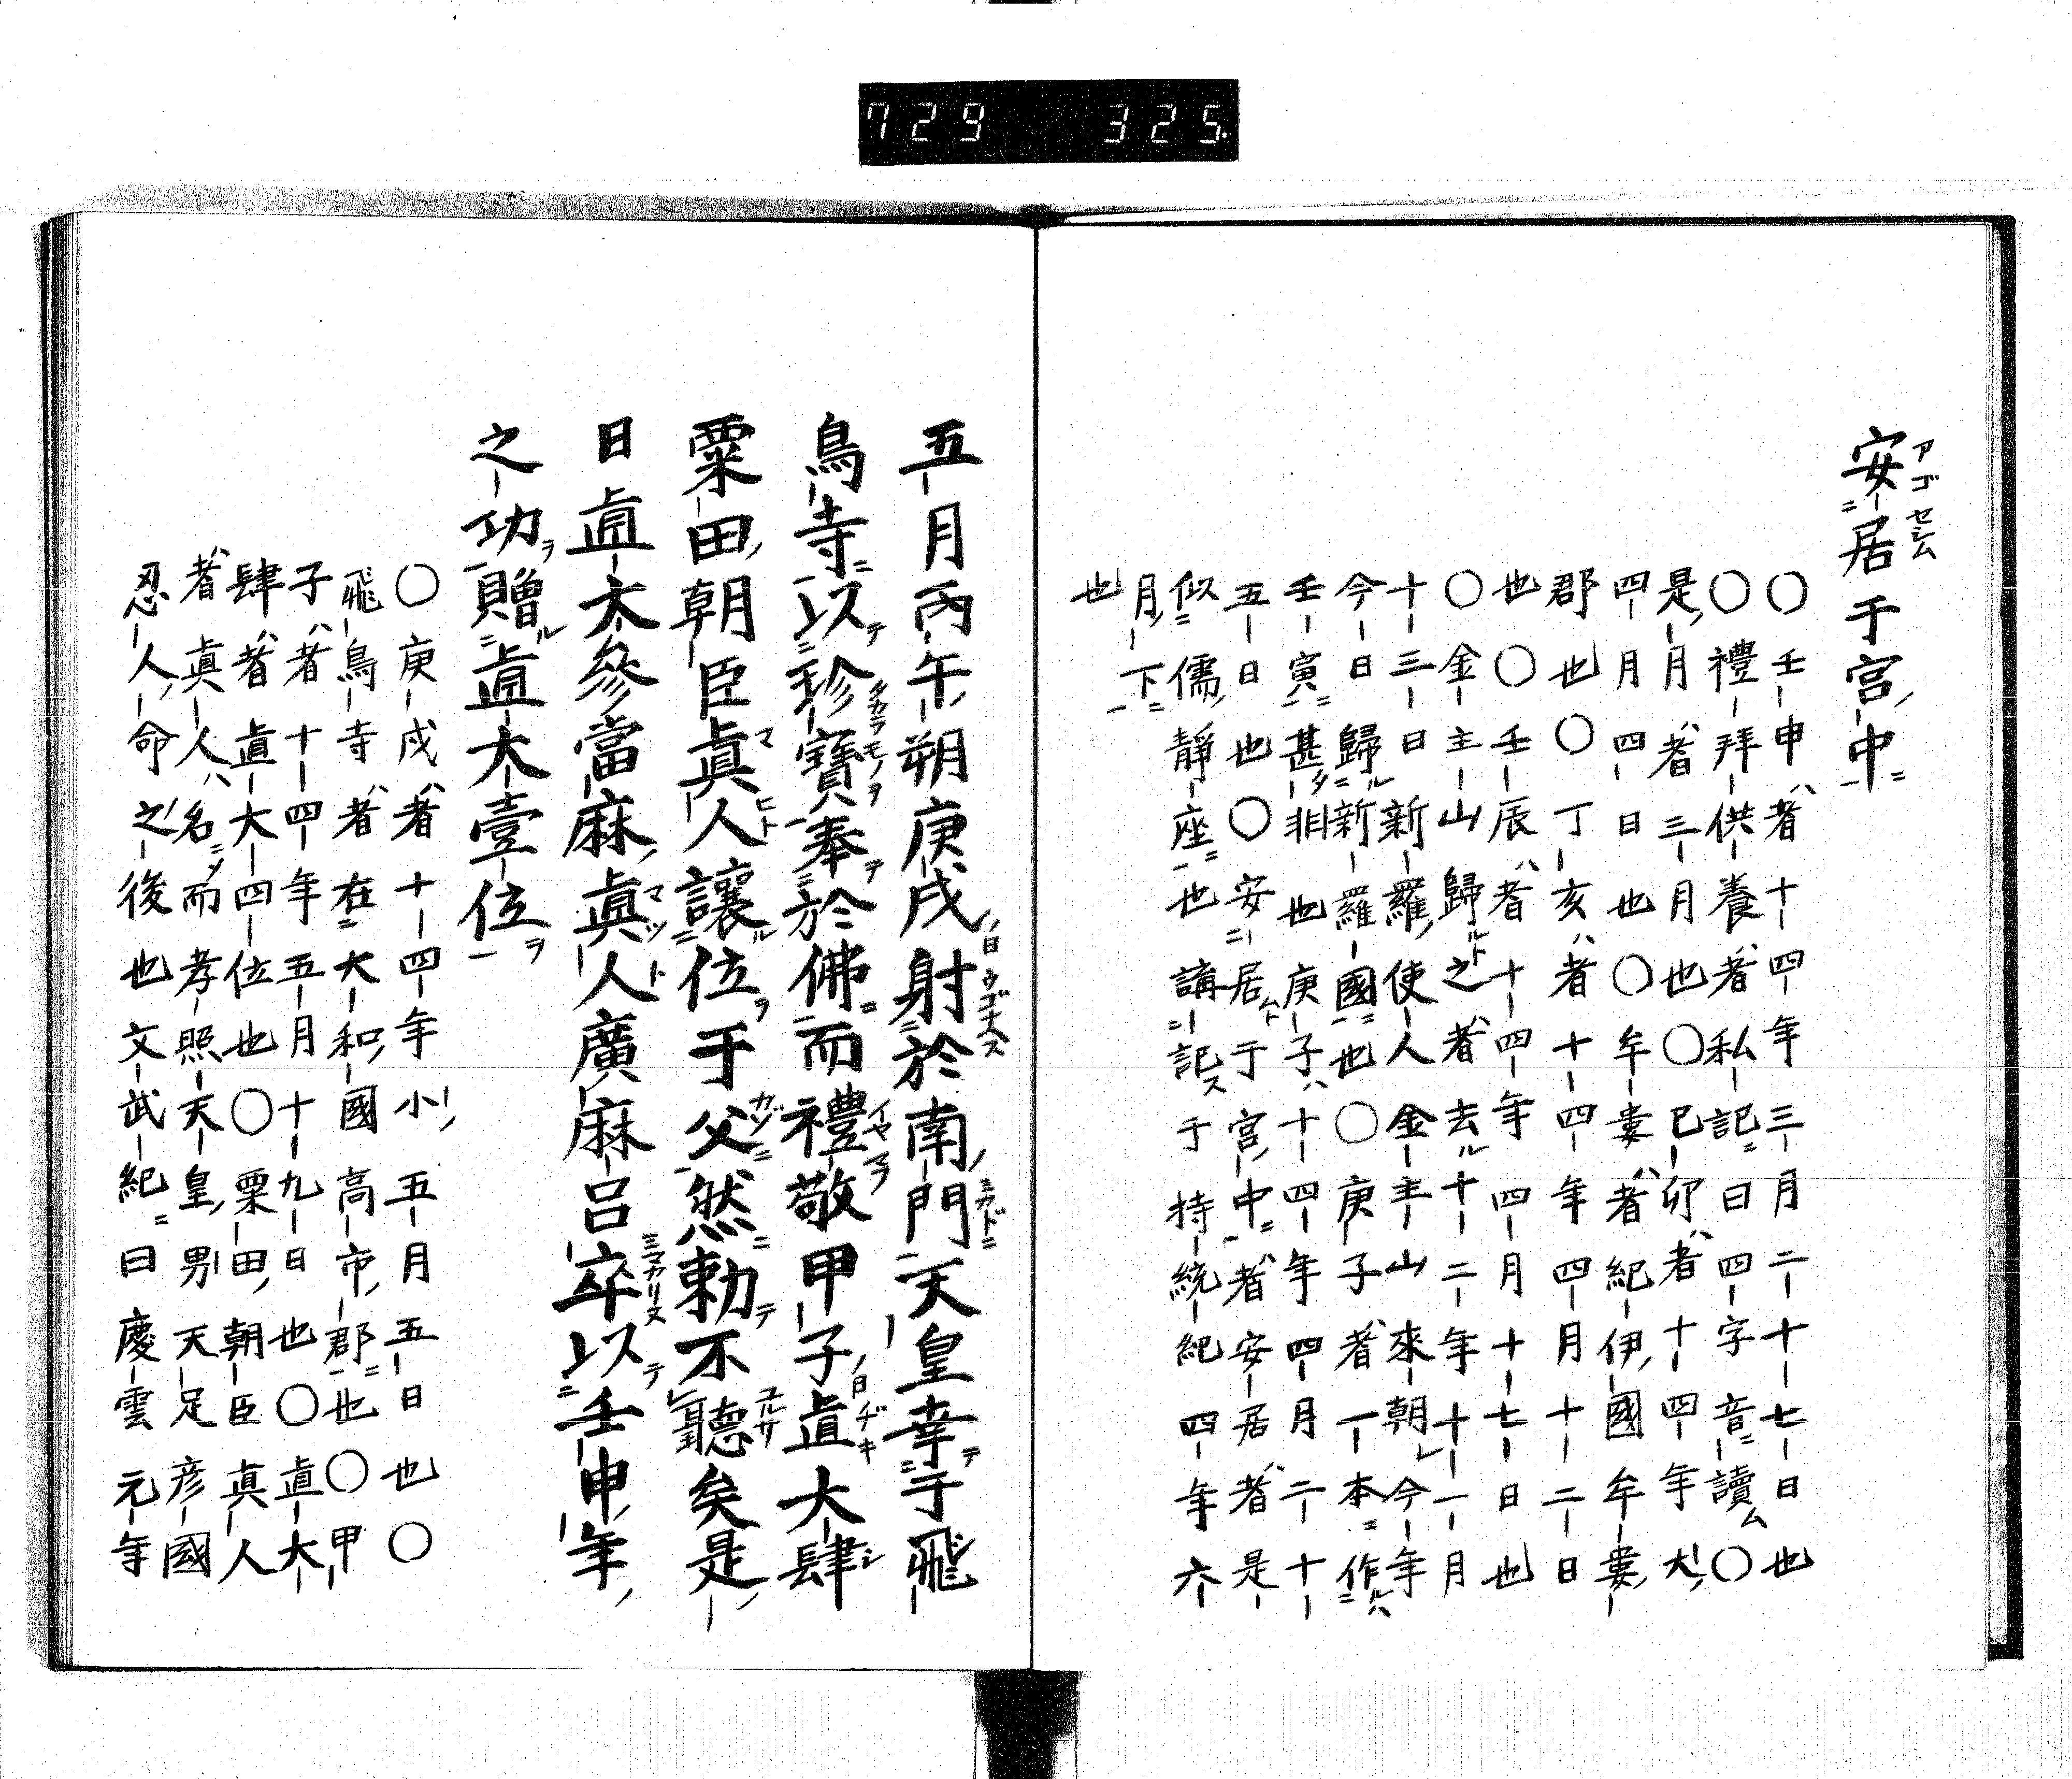 729 325
安居于宮中
〇壬申者十四年三月二十七日也
〇禮拜供養者私記曰四字音讀〇
是月者三月也〇已卯者十四年大
四月四日也〇牟婁者紀伊國牟婁
郡也〇丁亥者十四年四月十二日
也〇壬辰者十四年四月十七日也
〇金主山歸之者去十二年十一月
十三日新羅使人金主山來朝今年
今日歸新羅國也〇庚子者一本作
壬寅甚非也庚子十四年四月二十
五日也〇安居于宮中者安居者是
似儒靜座也講記于持統紀四年六
月下
也
五月丙午朔庚戌射於南門天皇幸于飛
鳥寺以珍寶奉於佛而禮敬甲子直大肆
粟田朝臣眞人讓位于父然勅不聽矣是
日直大參當麻眞人廣麻呂卒以壬申年
之功贈直大壹位
〇庚戌者十四年小五月五日也〇
飛鳥寺者在大和國高市郡也〇甲
子者十四年五月十九日也〇直大
肆者直大四位也〇粟田朝臣眞人
者眞人名而孝照天皇男天足彦國
忍人命之後也文武紀曰慶雲元年